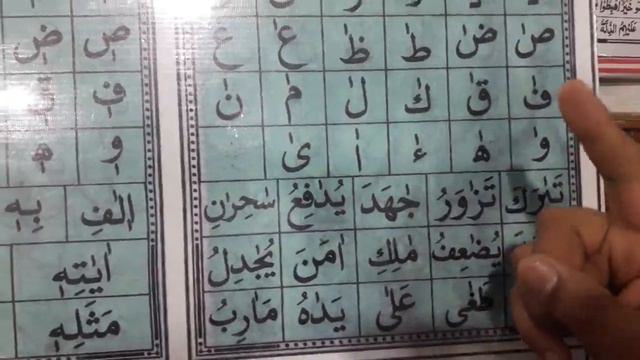 صٰ ضٰ طٰ ظٰ عٰ غٰ
فٰ قٰ كٰ لٰ مٰ نٰ
وٰ هٰ ءٰ اٰ ىٰ
تَبٰرَكَ تَزٰوَرُ جٰهَدَ يُدٰفِعُ سٰحِرٰنِ
يُضٰعِفُ مٰلِكِ اٰمَنَ يُجٰدِلُ
طَغٰى عَلٰى يَدٰهُ مَاٰرِبُ
صٖ ضٖ
فٖ قٖ
وٖ هٖ
اٖلٰفِ بِهٖ
اٰيٰتِهٖ
مَثَلِهٖ